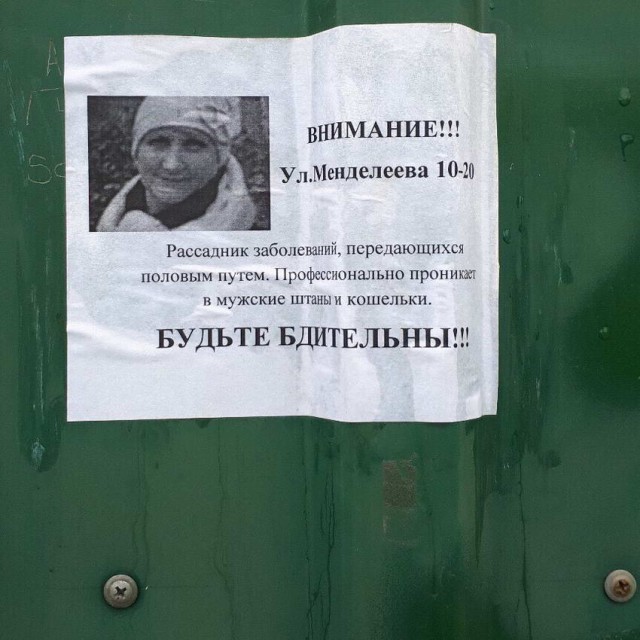 ВНИМАНИЕ!!!
Ул.Менделеева 10-20
Рассадник заболеваний, передающихся
половым путем. Профессионально проникает
в мужские штаны и кошельки.
БУДЬТЕ БДИТЕЛЬНЫ!!!